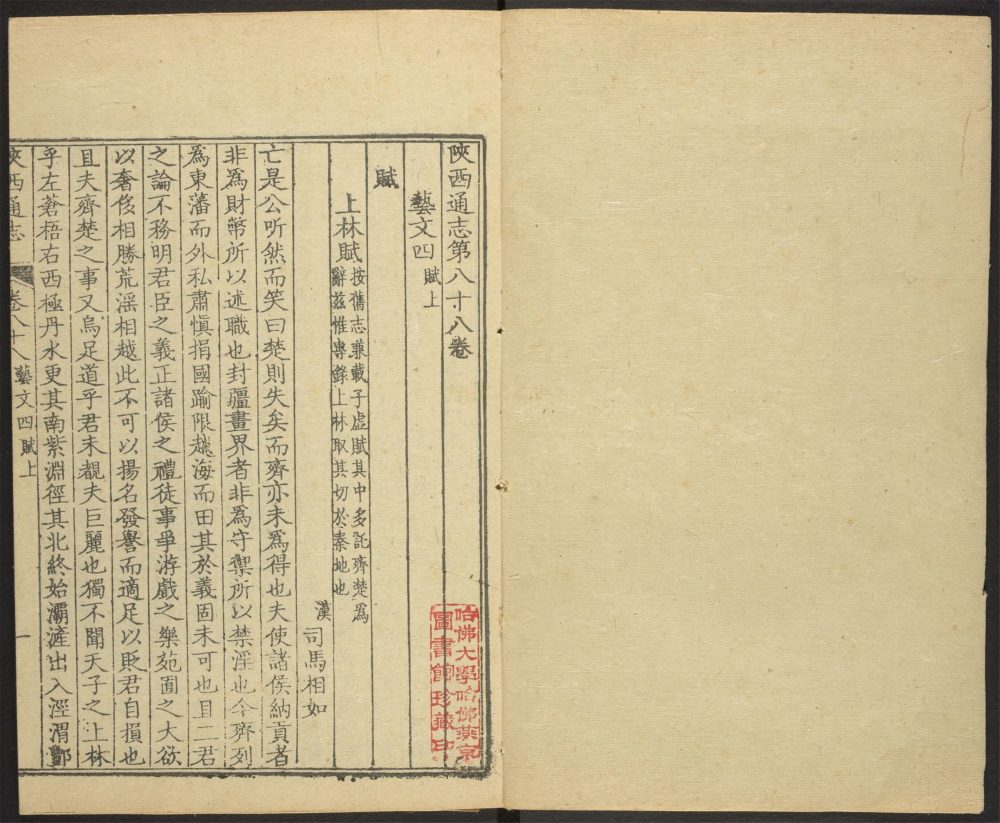 陝西通志第八十八卷
藝文四 賦上
賦
上林賦 按舊志兼載子虛賦其中多託齊楚爲
辭兹惟專錄上林取其切於秦地也
漢 司馬相如
亡是公听然而笑曰楚則失矣而齊亦未爲得也夫使諸侯納貢者
非爲財幣所以述職也封疆畫界者非爲守禦所以禁淫也今齊列
爲東藩而外私肅愼捐國踰限越海而田其於義固未可也且二君
之論不務明君臣之義正諸侯之禮徒事爭游戲之樂苑囿之大欲
以奢侈相勝荒淫相越此不可以揚名發譽而適足以貶君自損也
且夫齊楚之事又烏足道乎君未覩夫巨麗也獨不聞天子之上林
乎左蒼梧右西極丹水更其南紫淵徑其北終始灞滻出入涇渭酆
陝西通志 卷八十八 藝文四 賦上 一
哈佛大學哈佛燕京
圖書館珍藏印